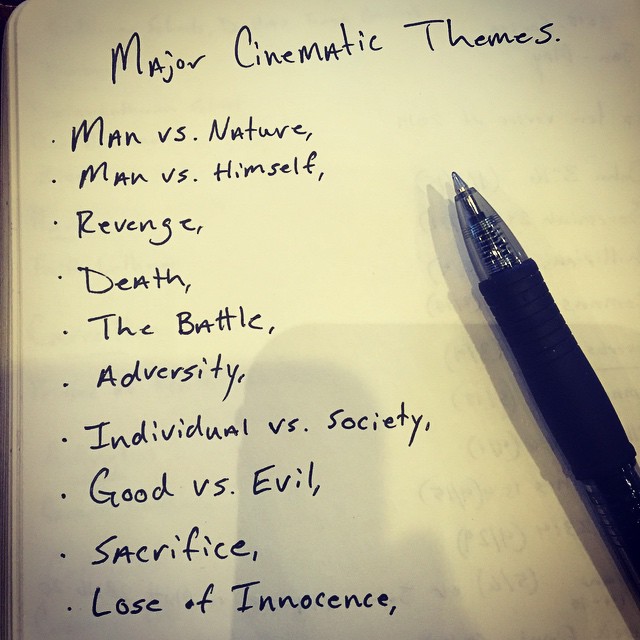 Major Cinematic Themes.
· Man vs. Nature,
· Man vs. Himself,
· Revenge,
· Death,
· The Battle,
· Adversity,
· Individual vs. Society,
· Good vs. Evil,
· Sacrifice,
· Lose of Innocence,